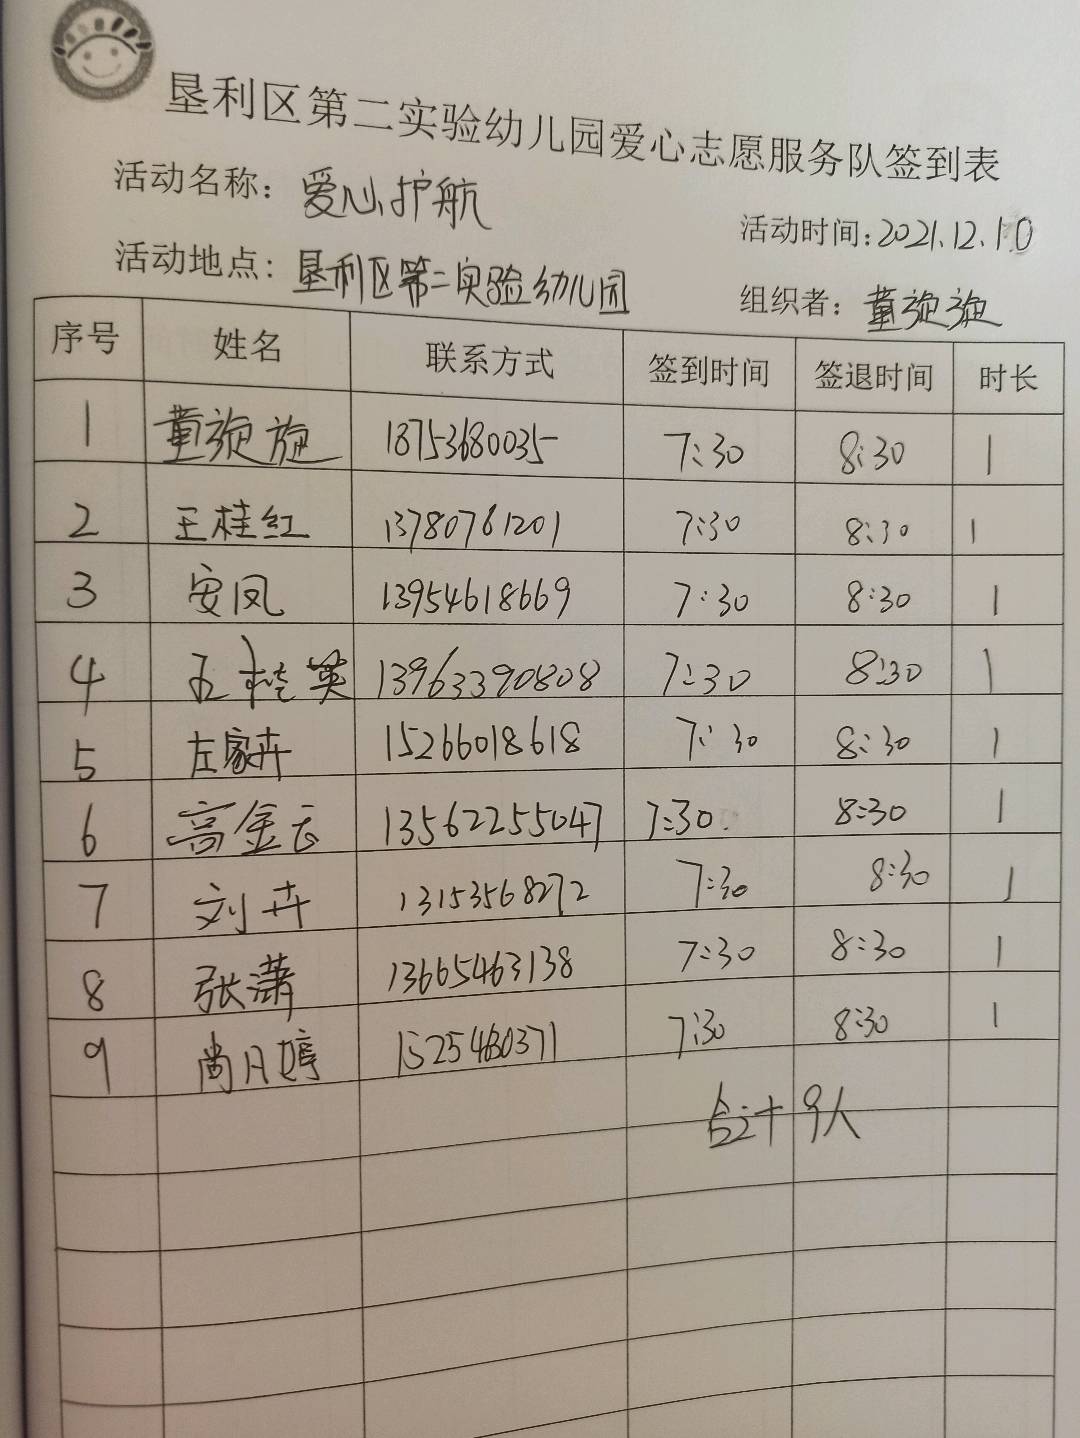 垦利区第二实验幼儿园爱心志愿服务队签到表
活动名称：爱心护航
活动时间：2021.12.10
活动地点：垦利区第二实验幼儿园
组织者：董旋旋
序号 姓名 联系方式 签到时间 签退时间 时长
1 董旋旋 18753680035 7:30 8:30 1
2 王桂红 13780761201 7:30 8:30 1
3 安凤 13954618669 7:30 8:30 1
4 王桂英 13963390808 7:30 8:30 1
5 左家卉 15266018618 7:30 8:30 1
6 高金云 13562255047 7:30 8:30 1
7 刘卉 13153568272 7:30 8:30 1
8 张潇 13665463138 7:30 8:30 1
9 尚月婷 7:30 8:30 1
合计9人